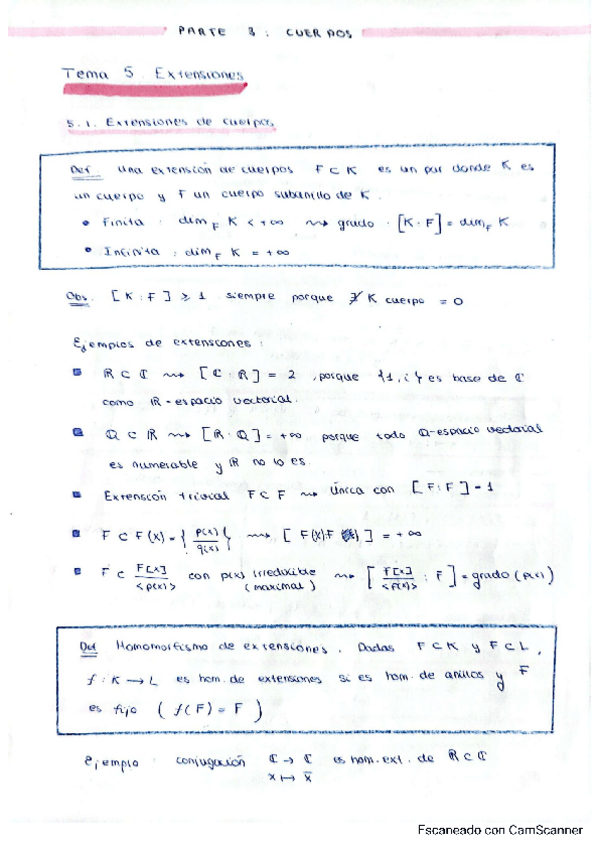 PARTE 3: CUERPOS
Tema 5. Extensiones
5.1. Extensiones de cuerpos
Def. Una extensión de cuerpos F ⊂ K es un par donde K es
un cuerpo y F un cuerpo subanillo de K.
• Finita: dim_F K < +∞ ⇝ grado · [K:F] = dim_F K
• Infinita: dim_F K = +∞
Obs. [K:F] ≥ 1 siempre porque ∄ K cuerpo = 0
Ejemplos de extensiones:
ℝ ⊂ ℂ ⇝ [ℂ:ℝ] = 2, porque {1, i} es base de ℂ
como ℝ-espacio vectorial.
ℚ ⊂ ℝ ⇝ [ℝ:ℚ] = +∞ porque todo ℚ-espacio vectorial
es numerable y ℝ no lo es.
Extensión trivial F ⊂ F ⇝ Única con [F:F] = 1
F ⊂ F(x) = { p(x)/q(x) } ⇝ [F(x):F] = +∞
F ⊂ F[x]/<p(x)> con p(x) irreducible (maximal) ⇝ [F[x]/<p(x)> : F] = grado (p(x))
Def Homomorfismo de extensiones. Dadas F ⊂ K y F ⊂ L,
f: K → L es hom. de extensiones si es hom. de anillos y F
es fijo (f(F) = F)
Ejemplo: conjugación ℂ → ℂ es hom. ext. de ℝ ⊂ ℂ
x ↦ x̄
Escaneado con CamScanner